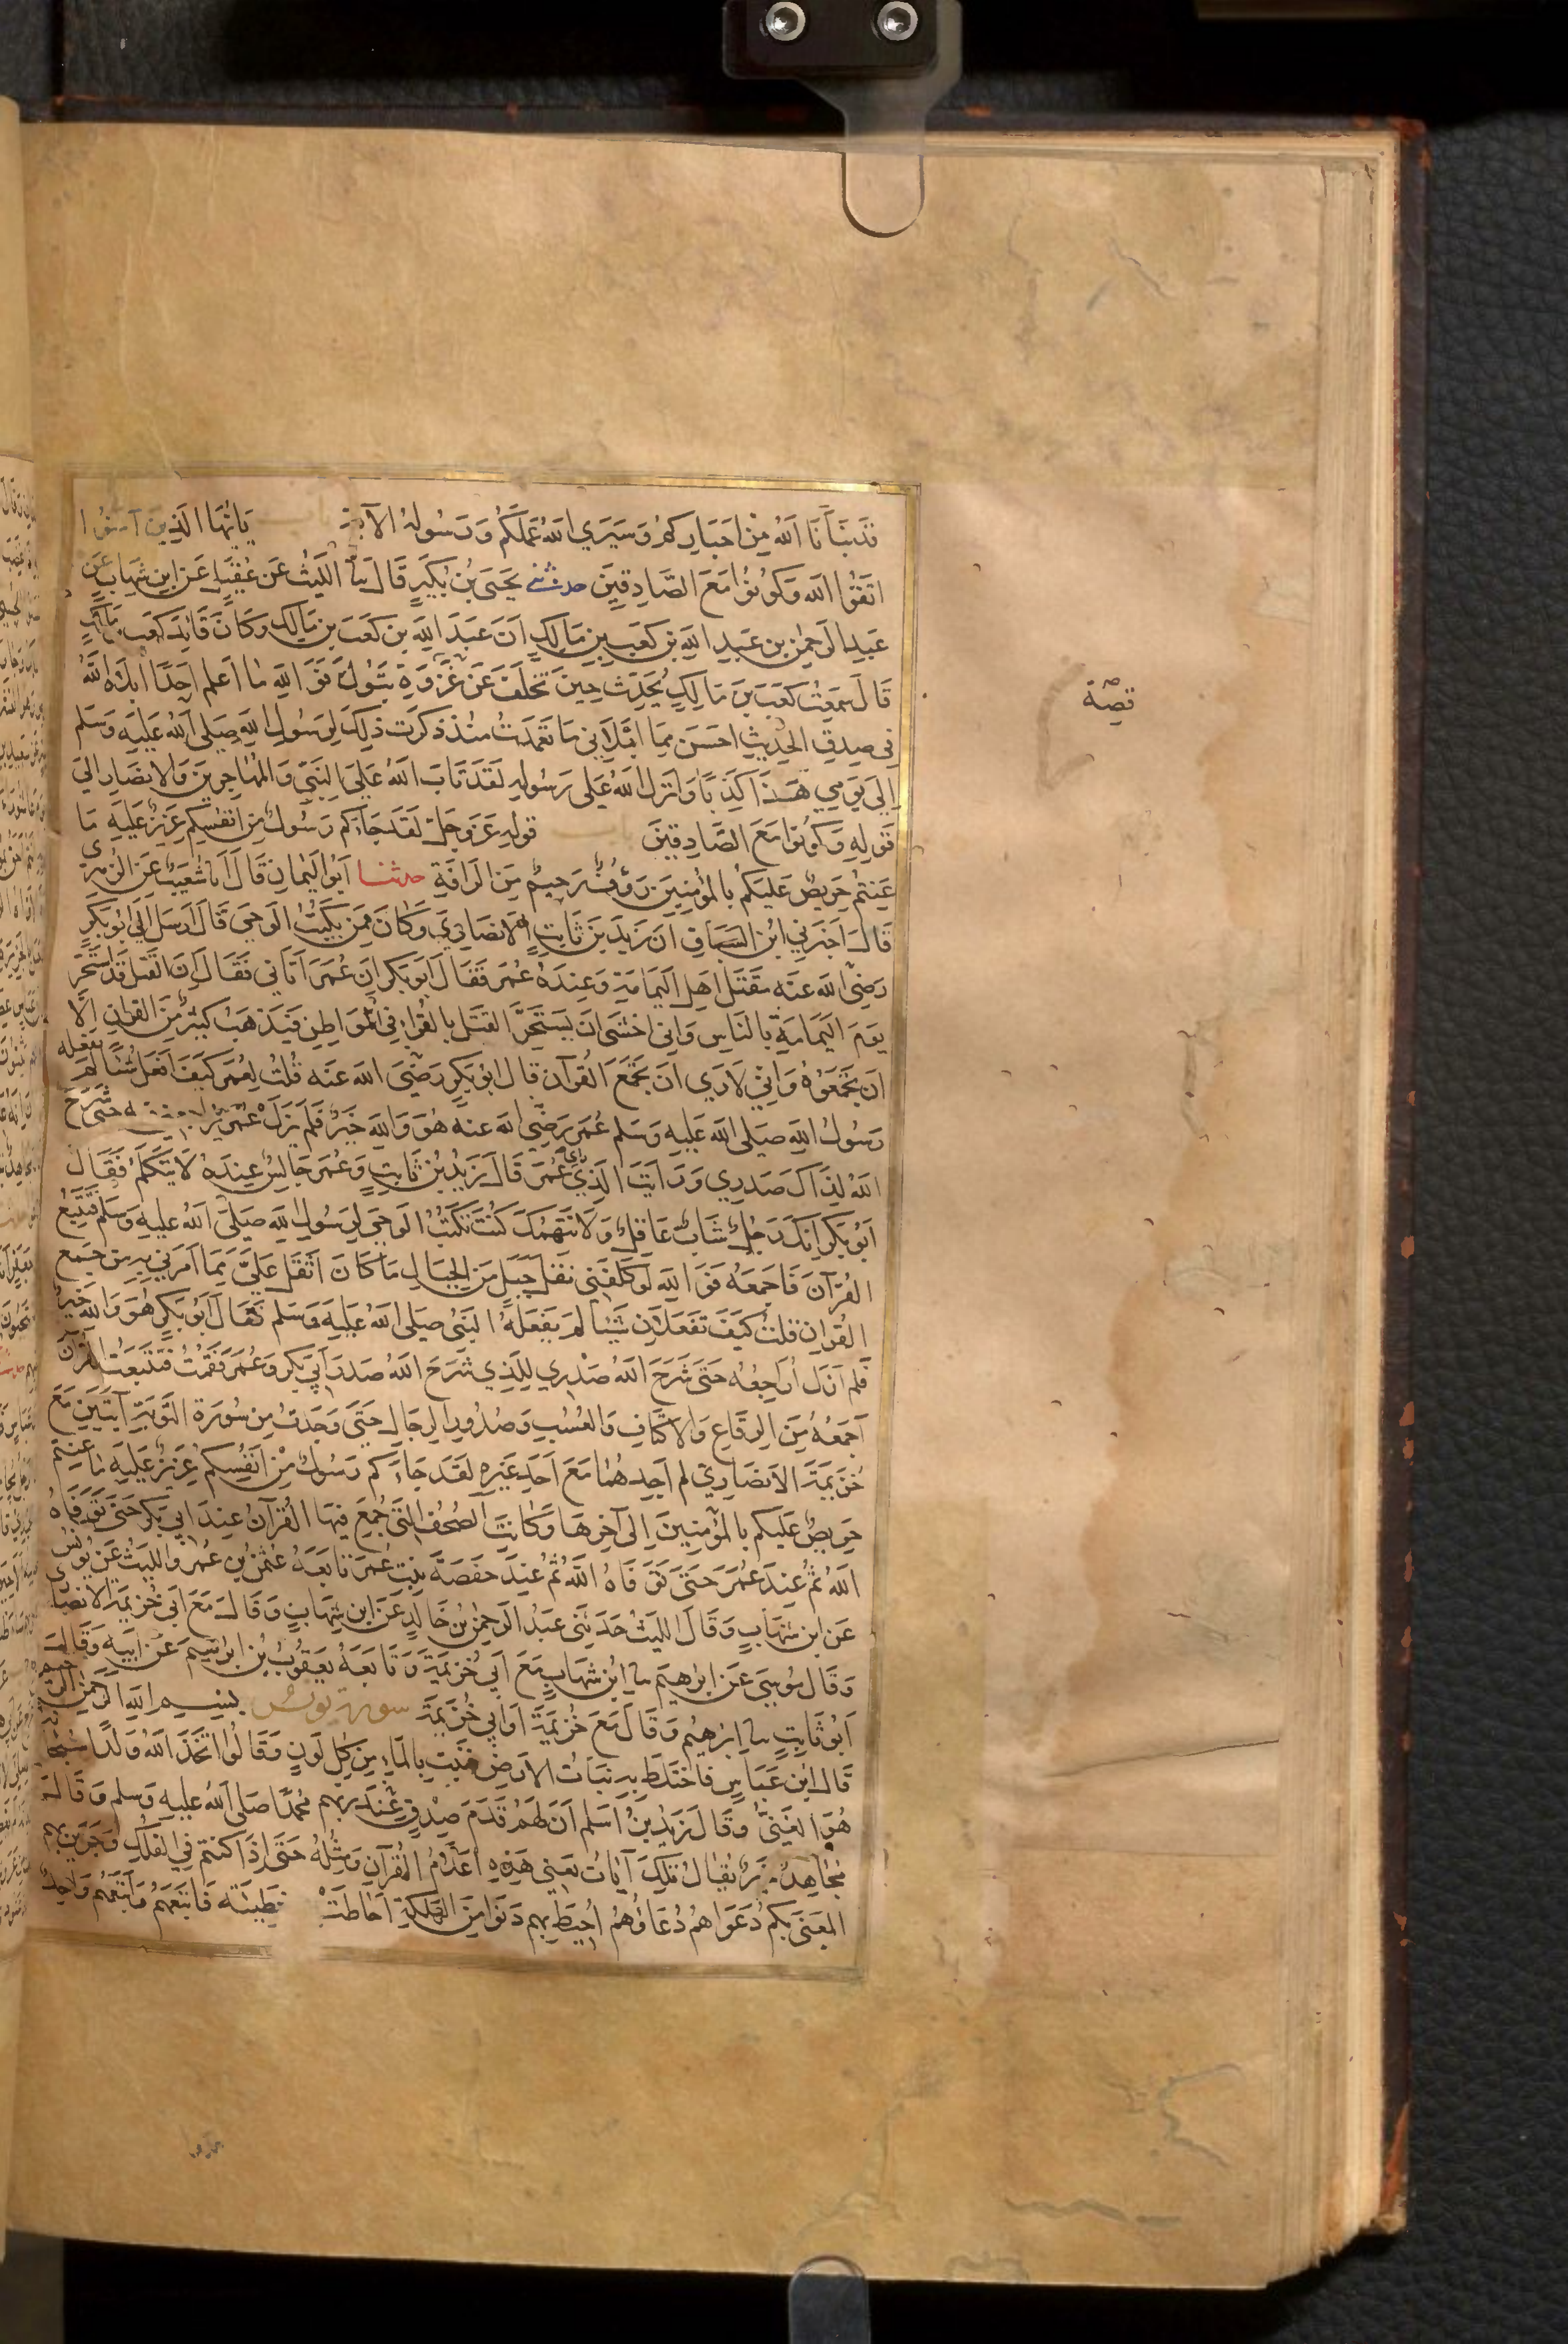 قَد نَبَّأنَا اللهُ مِنْ اَخبَارِكم وَسَيَرَي اللهُ عَمَلَكُم وَرَسُولهُ الآية باب يَايُّهَا الذِينَ آمنُوا
اتَّقُوا الله وَكُونُوا مَعَ الصَّادِقِينَ حدثني يَحيَى بْنُ بُكَيرٍ قَالَ نا اللَّيثُ عَن عُقَيلٍ عَن ابنِ شِهَابٍ عَن
عَبدِ الرَّحمنِ بن عَبدِ اللهِ بن كَعبِ بنِ مَالِكٍ اَنَّ عَبدَ اللهِ بن كَعبَ بنِ مَالِكٍ وكَانَ قَائِدَ كَعبِ بن مَالِكٍ
قَالَ سَمِعتُ كَعبَ بنَ مَالِكٍ يُحَدِّث حِينَ تَخَلَّفَ عَن غَزوَةِ تَبُوكَ فَوَ اللهِ مَا اَعلم اَحَدًا ابلاهُ اللهُ
فِي صِدقِ الحَدِيثِ احسَن مِمَّا ابَلانِي مَا تَعَمَّدتُ مُنْذ ذكَرت ذلِكَ لِرَسُولِ اللهِ صَلى اللهُ عَليهِ وَسَلم
اِلَى يَومِي هَذَا كَذِبًا وَاَنزلَ اللهُ عَلَى رَسُولِهِ لَقَد تَابَ اللهُ عَلَى النَّبِيّ وَالمُهَاجِرِينَ وَالانصَارِ الىَ
قَولِهِ وَكونُوا مَعَ الصَّادِقِينَ باب قولِهِ عَزَّ وجَلَّ لَقَد جَاءَكم رَسُولٌ مِن انفسِكُم عَزِيزٌ عَلَيهِ مَا
عَنِتُّم حَرِيصٌ عَلَيكُم بِالمؤمِنِينَ رَؤُفٌ رَحِيمٌ مِنَ الرَّافَةِ حدثنا اَبُو اليَمانِ قَالَ اَنا شُعَيبٌ عَن الزُّهرِي
قَالَ اَخبَرَنِي ابْنُ السَّبَّاقِ اَنَّ زَيدَ بنَ ثَابِتٍ الانصَارِيَّ وَكَانَ مِمَّن يَكتُبُ الوَحيَ قَالَ اَرسَلَ اِليَّ ابُو بَكرٍ
رَضِيَ الله عَنه مَقتَلَ اهلِ اليَمَامَةِ وَعِندَهُ عُمَر فَقَالَ اَبُو بَكرٍ اِنَّ عُمَرَ اَتَانِي فَقَالَ اِنَّ القَتلَ قَد استَحَرَّ
يَومَ اليَمَامَةِ بِالنَّاسِ وَاِنِي اخشَى اَن يَستَحِرَّ القتَلُ بِالقُرَّاءِ فِي المَوَاطِنِ فَيَذهَبُ كَثِيرٌ مِنَ القرانِ الّا
اَن تَجمَعُوهُ وَانِّي لَارَي اَن تَجمَعَ القُرآن قال ابُو بَكرٍ رَضِيَ الله عَنه قُلتُ لِعُمَر كَيفَ اَفعَلُ شيئًا لَم يفعله
رَسُولُ اللهِ صَلى الله عَليهِ وَسَلم عُمَر رَضِي الله عنه هُوَ وَاللهِ خَيرٌ فَلَم يَزَل عُمَر يُراجعني فيه حَتى شَرَحَ
اللهُ لِذَالكَ صَدرِي وَرَايتُ الَّذِي رَاي عُمَر قَالَ زَيدُ بنُ ثَابِتٍ وَعُمَر جَالِسٌ عِندَهُ لَا يَتَكَلَّمُ فَقَالَ
اَبُو بَكرٍ اِنَّكَ رَجُلٌ شَابٌّ عَاقِلٌ وَلَا نَتَّهِمُكَ كُنتَ تَكتُبُ الوَحيَ لِرَسُولِ اللهِ صَلَّى اللهُ عَليهِ وَسَلم فَتَتَبَّع
القُرآنَ فَاجمَعهُ فَوَ اللهِ لَو كَلَّفَنِي نَقلَ جَبَلٍ مِنَ الجِبَالِ مَا كَانَ اَثقَلَ عَلَيَّ مِمَّا اَمَرَنِي بِهِ مِن جَمع
القُرانِ قلتُ كَيفَ تَفعَلَانِ شَيئًا لَم يَفعَلهُ النَّبيُّ صلى اللهُ عَليهِ وَسَلم فَقَالَ اَبُو بَكرٍ هُوَ وَاللهِ خَيرٌ
فَلم اَزَل اُرَاجِعُه حَتَّى شَرَحَ اللهُ صَدْرِي لِلَّذِي شَرَحَ اللهُ صَدرَ اَبِي بَكرٍ وَعُمَرَ فَقُمتُ فَتَتَبَّعتُ القُرآنَ
اَجمَعُهُ مِنَ الرِّقَاعِ وَالاكتَافِ وَالعُسُبِ وَصُدُورِ الرِّجَالِ حَتَّى وَجَدتُ مِن سُورَة التَّوبَةِ آيَتَينِ مَعَ
خُزَيمَةَ الاَنصَارِيّ لم اَجِدهُمَا مَعَ اَحَدٍ غَيرِهِ لَقَد جَاءَكم رَسُولٌ مِنْ اَنفُسِكُم عَزِيزٌ عَلَيهِ مَا عنتم
حَرِيصٌ عَلَيكُم بِالمؤمِنِينَ اِلَى آخِرِهَا وَكَانَتِ الصُّحُفُ الَّتِي جُمِعَ فِيهَا القُرآنُ عِندَ ابِي بَكرٍ حَتَّى تَوَفَّاهُ
اللهُ ثُمَّ عِندَ عُمَرَ حَتَّى تَوَفَّاهُ اللهُ ثُمَّ عِندَ حَفصَةَ بِنتِ عُمَرَ تَابَعَهُ عُثمٰنُ بن عُمَر وَاللَّيثُ عَن يُونُسَ
عَن ابنِ شِهَابٍ وَقَالَ اللَّيثُ حَدَّثَنِي عَبدُ الرَّحمنِ بنُ خَالِدٍ عَن ابنِ شِهَابٍ وَقَالَ مَعَ اَبِي خُزَيمَةَ الانصَارِي
وَقَالَ مُوسَى عَن اِبرَاهِيمَ نا ابْنُ شِهَابٍ مَعَ اَبِي خُزَيمَةَ وَتَابَعَهُ يَعقُوبُ بنُ اِبرٰهِيمَ عَن اَبِيهِ وَقَالَ
اَبُو ثَابِتٍ نا اِبرٰهِيمُ وَقَالَ مَعَ خُزَيمَةَ اَو اَبِي خُزَيمَةَ سورة يونس بِسْمِ اللهِ الرَّحمنِ الرحيم
قَالَ ابن عَبَّاسٍ فاختَلَطَ بِهِ نَبَات الارَضِ فَنَبَتَ بِالمَاءِ مِن كُلِّ لَونٍ وَقَالُوا اتَّخَذَ اللهُ وَلَدًا سُبحَانَهُ
هُوَ الغَنِيُّ وَقَالَ زَيدُ بنُ اَسلم اَنَّ لَهُم قَدَمَ صِدْقٍ عِندَ رَبِّهِم مُحَمَّدًا صَلى اللهُ عَليهِ وَسلم وَقَالَ
مُجَاهِدٌ خَيرٌ يُقَالُ تِلكَ آيَاتُ يَعنِي هَذِهِ اَعلَامُ القُرآنِ وَمِثلُهُ حَتَّى اِذَا كنتُم فِي الفلكِ وَجَرَينَ بِهِم
المَعَنى بِكُم دُعَوَاهُم دُعَاؤُهُمْ اُحِيطَ بِهِم دَنَوا مِنَ الهَلَكَةِ اَحَاطَتْ خَطِيئَته فَاتَّبَعَهُم وَاَتبَعَهُم وَاحِدٌ
قصّة